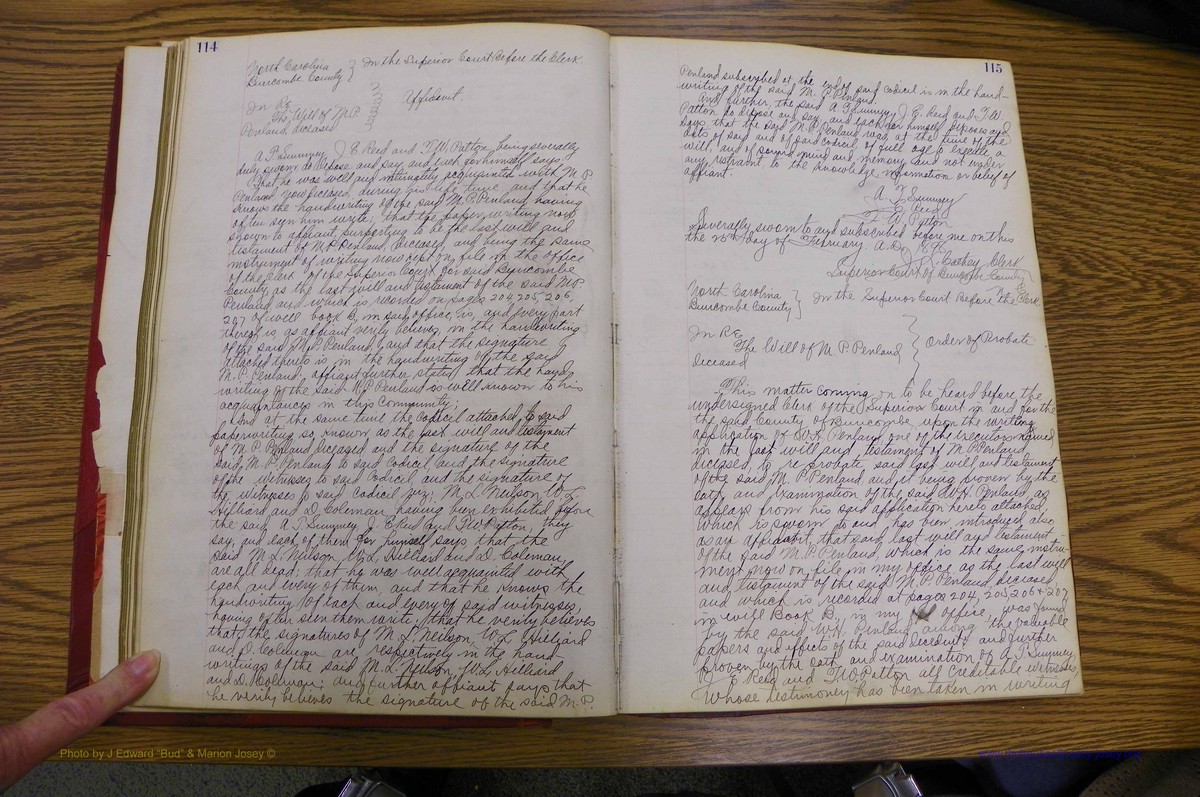 114
North Carolina } In the Superior Court Before the Clerk
Buncombe County
In RE
The Will of M.P. Affidavit.
Penland, deceased
A. T. Summey J. E. Reed and T. W. Patton, being severally
duly sworn do depose and say and each for himself says:
That he was well and intimately acquainted with M. P.
Penland now deceased, during his life time, and that he
knows the handwriting of the said M. P. Penland, having
often seen him write, that the paper writing now
shown to affiant, purporting to be the last will and
testament of M. P. Penland, deceased, and being the same
instrument of writing now kept on file in the office
of the Clerk of the Superior Court for said Buncombe
County as the last will and testament of the said M. P.
Penland and which is recorded on pages 204, 205, 206,
207 of will book B, in said office, is, and every part
thereof is as affiant verily believes, in the handwriting
of the said M. P. Penland, and that the signature
attached thereto is in the handwriting of the said
M. P. Penland, affiant further states, that the hand-
writing of the said M. P. Penland is well known to his
acquaintances in this Community;
And at the same time the Codicil attached to said
paperwriting so known as the last will and testament
of M. P. Penland deceased and the signature of the
said M. P. Penland to said Codicil and the signature
of the witnesses to said Codicil and the signature of
the witnesses to said Codicil M. L. Neilson, W. L.
Hilliard and D. Coleman, having been exhibited before
the said A. T. Summey J. E. Reed and T. W. Patton, they
say, and each of them for himself says that the
said M. L. Neilson, W. L. Hilliard and D. Coleman,
are all dead; that he was well acquainted with
each and every of them, and that he knows the
handwriting of each and every of said witnesses,
having often seen them write; that he verily believes
that the signatures of M. L. Neilson, W. L. Hilliard
and D. Coleman are respectively in the hand
writings of the said M. L. Neilson, W. L. Hilliard
and D. Coleman; and further affiant says that
he verily believes the signature of the said M. P.
115
Penland subscribed at the end of said Codicil is in the hand-
writing of the said M. P. Penland.
And further, the said A. T. Summey J. E. Reed and T. W.
Patton do depose and say, and each for himself deposes and
says, that the said M. P. Penland was, at the time of the
date of said and of said codicil, of full age to execute a
will, and of sound mind and memory and not under
any restraint to the knowledge information or belief of
affiant.
A. T. Summey
J. E. Reed
T. W. Patton
Severally sworn to and subscribed before me on this
the day of February A.D.
J. L. Cathey Clerk
Superior Court of Buncombe County
North Carolina } In the Superior Court Before the Clerk
Buncombe County
In RE
The Will of M. P. Penland } Order of Probate
Deceased
This matter coming on to be heard before the
undersigned Clerk of the Superior Court in and for the
the said County of Buncombe upon the written
application of W. H. Penland, one of the executors named
in the last will and testament of M. P. Penland
deceased, to re-probate said last will and testament
of the said M. P. Penland and it being proven by the
oath and examination of the said W. H. Penland, as
appears from his said application hereto attached,
which is sworn to and has been introduced also
as an affidavit, that said last will and testament
of the said M. P. Penland, which is the same instru-
ment now on file in my office as the last will
and testament of the said M. P. Penland, deceased,
and which is recorded at pages 204, 205, 206 & 207
in will Book B, in my office, was found
by the said W. H. Penland among the valuable
papers and effects of the said decedent; and further
proven by the oath and examination of A. T. Summey
J. E. Reed and T. W. Patton all creditable witnesses
whose testimoney has been taken in writing
Photo by J Edward "Bud" & Marion Josey ©